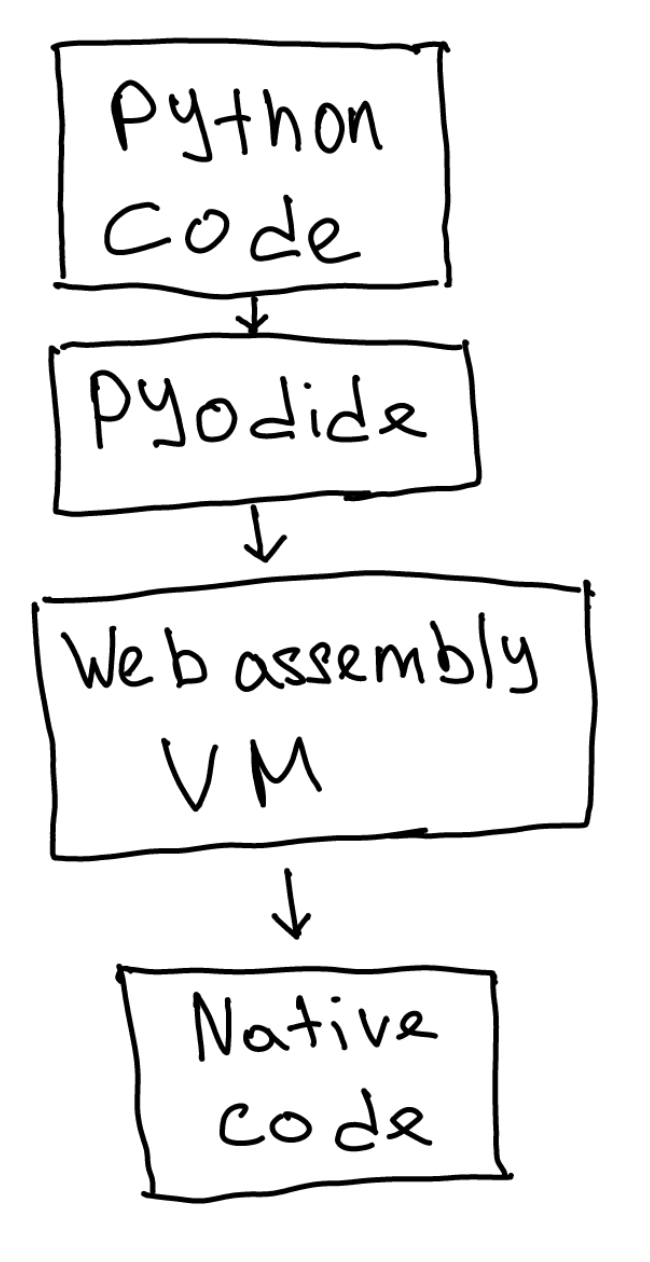 Python
Code
Pyodide
Web assembly
VM
Native
code